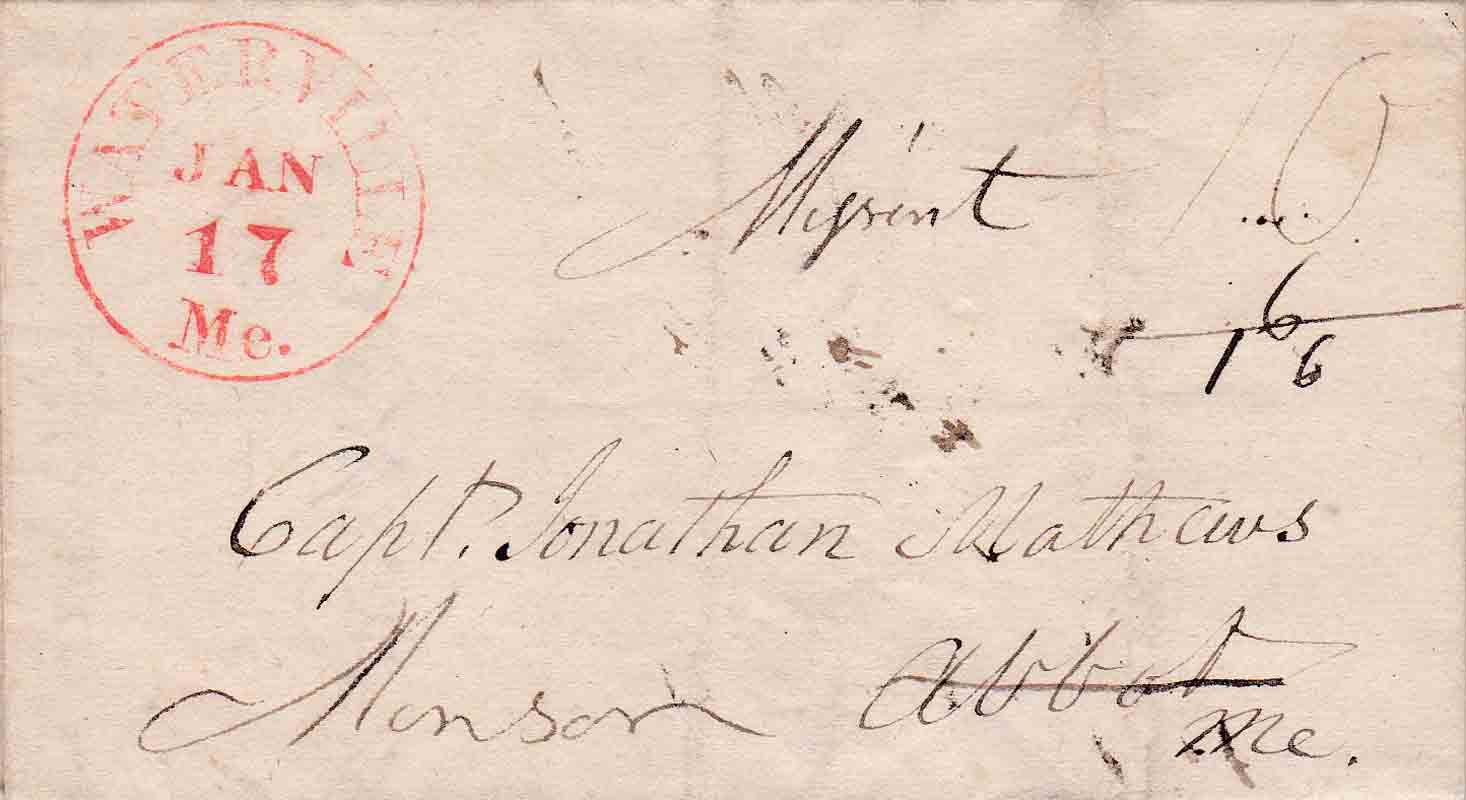 WATERVILLE
JAN
17
Me.
Misent 10
6
1 6
Capt. Jonathan Mathews
Monson Abbot
Me.